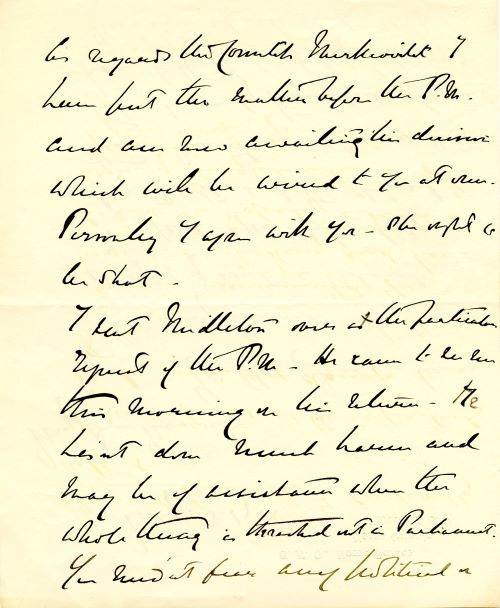 As regards the Countess Markievitch I
have put the matter before the P.M.
and am now awaiting his decision
which will be wired to you at once.
Personally I agree with you - She ought to
be shot -
I sent Middleton over at the particular
request of the P.M - He came to see me
this morning on his return - He
hasn't done much harm and
may be of assistance when the
whole thing is thrashed out in Parliament.
You needn't fear any political